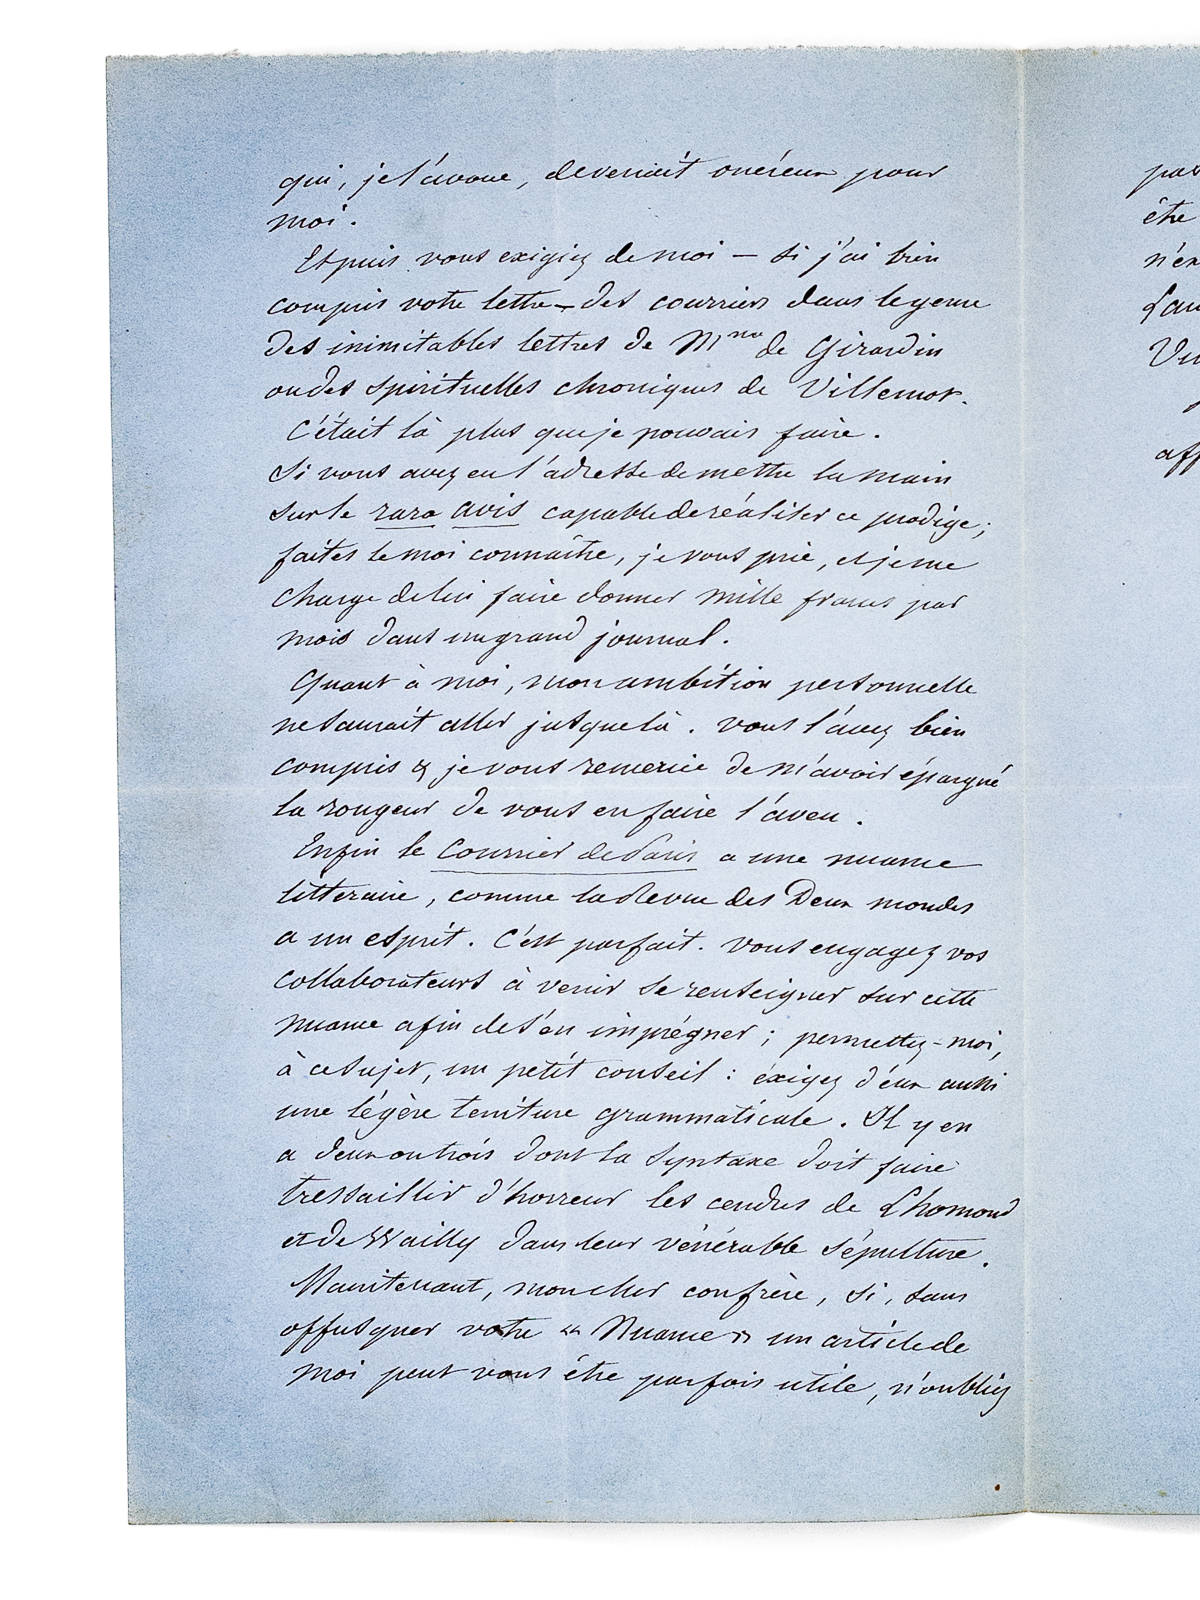 qui, je l'avoue, devenait onéreux pour
moi.
Et puis vous exigiez de moi — si j'ai bien
compris votre lettre — des courriers dans le genre
des inimitables lettres de Mme de Girardin
ou des spirituelles chroniques de Villemot.
C'était là plus que je pouvais faire.
Si vous avez eu l'adresse de mettre la main
sur le rara avis capable de réaliser ce prodige;
faites le moi connaître, je vous prie, et je me
charge de lui faire donner mille francs par
mois dans un grand journal.
Quant à moi, mon ambition personnelle
ne saurait aller jusque là. Vous l'avez bien
compris & je vous remercie de m'avoir épargné
la rougeur de vous en faire l'aveu.
Enfin le Courrier de Paris a une nuance
littéraire, comme la Revue des Deux mondes
a un esprit. C'est parfait. Vous engagez vos
collaborateurs à venir se renseigner sur cette
nuance afin de s'en imprégner; permettez-moi,
à ce sujet, un petit conseil : exigez d'eux aussi
une légère teinture grammaticale. Il y en
a deux ou trois dont la syntaxe doit faire
tressaillir d'horreur les cendres de Lhomond
et de Wailly dans leur vénérable sépulture.
Maintenant, mon cher confrère, si, sans
offusquer votre « Nuance » un article de
moi peut vous être parfois utile, n'oubliez
être